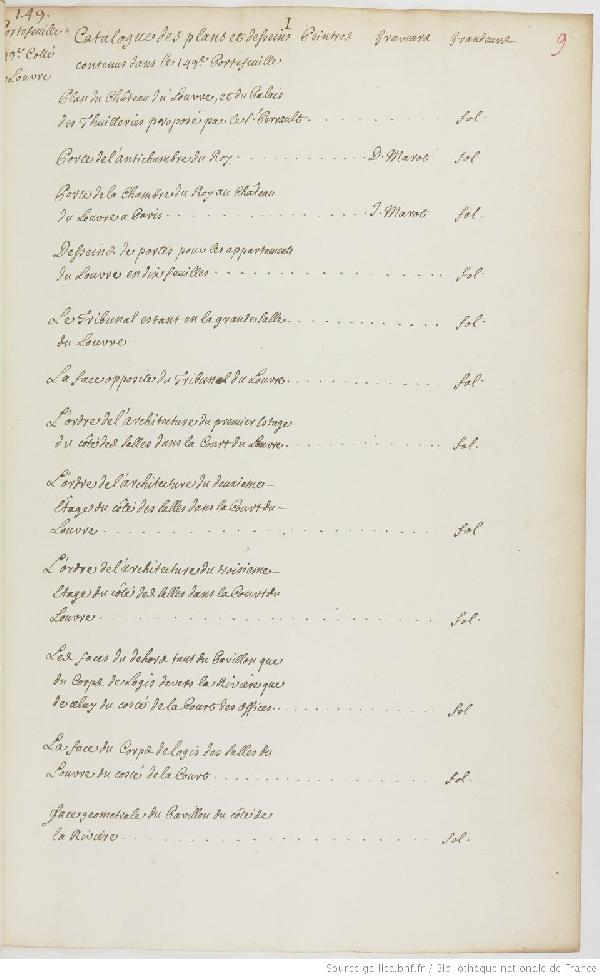 149.
I
9
Portefeuille
149e. Cotté
Louvre
Catalogue des plans et desseins Peintres Graveurs Grandeurs
contenus dans le 149e. Portefeuille
Plan du Château du Louvre, et du Palais
des Thuilleries proposé par le Sr. Perrault. fol.
Porte de l'antichambre du Roy. D. Marot fol.
Porte de la Chambre du Roy au Château
du Louvre a Paris. D. Marot fol.
Desseins de portes pour les appartements
du Louvre en dix feuilles. fol.
Le Tribunal estant en la grande Salle. fol.
du Louvre
La face opposite du Tribunal du Louvre. fol.
L'ordre de l'architecture du premier Estage
du côté des salles dans la Court du Louvre. fol.
L'ordre de l'architecture du deuxieme
Etage du côté des salles dans la Court du
Louvre. fol
L'ordre de l'architecture du troisieme
Etage du côté des salles dans la Court du
Louvre. fol.
Les faces du dehors tant du Pavillon que
du Corps de Logis devers la Riviere que
de celuy du costé de la Court des Offices. fol
La face du Corps de logis des salles du
Louvre du costé de la Court. fol.
face geometrale du Pavillon du côté de
la Riviere. fol.
Source gallica.bnf.fr / Bibliothèque nationale de France